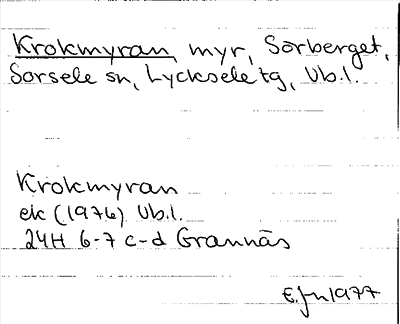 Krokmyran, myr, Sörberget,
Sorsele sn, Lycksele tg, Vb.l.
Krokmyran
ek (1976) Vb.l.
24H 6-7 c-d Grannäs
1977